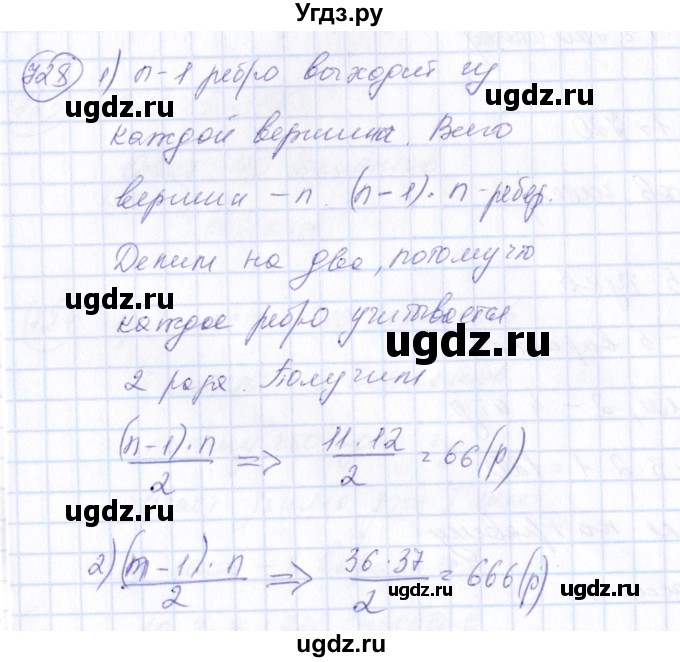 Угдз.ру
728 1) n-1 ребро выходит из
ugdz.ru ugdz.ru
каждой вершины. Всего
вершин - n. (n-1)·n-ребер.
Делим на два, потому что
ugdz.ru
каждое ребро учитывается
ugdz.ru
2 раза. Получим
(n-1)·n/2 => 11·12/2 = 66(р)
ugdz.ru
2) (n-1)·n/2 => 36·37/2 = 666(р)
ugdz.ru
ugdz.ru
ugdz.ru